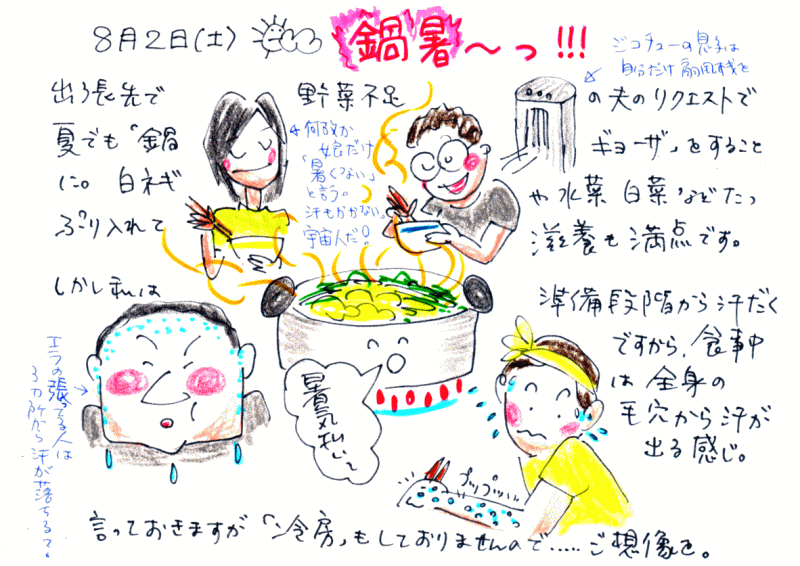 8月2日(土)
鍋暑〜っ!!!
ジコチューの息子は
自分だけ扇風機を
出る長先で
野菜不足
の夫のリクエストで
夏でも「鍋
ギョーザ」をすること
に。白ネギ
や水菜 白菜などたっ
ぷり入れて
滋養も満点です。
何故か
娘だけ
「暑くない」
と言う。
汗もかかない
宇宙人だ!
しかし私は
準備段階から汗だく
ですから、食事中
は全身の
毛穴から汗が
出る感じ。
エラの張ってる人は
3カ所から汗が落ちるて。
暑気払いで
プップッ…
言っておきますが「冷房」もしておりませんので.....ご想像を。